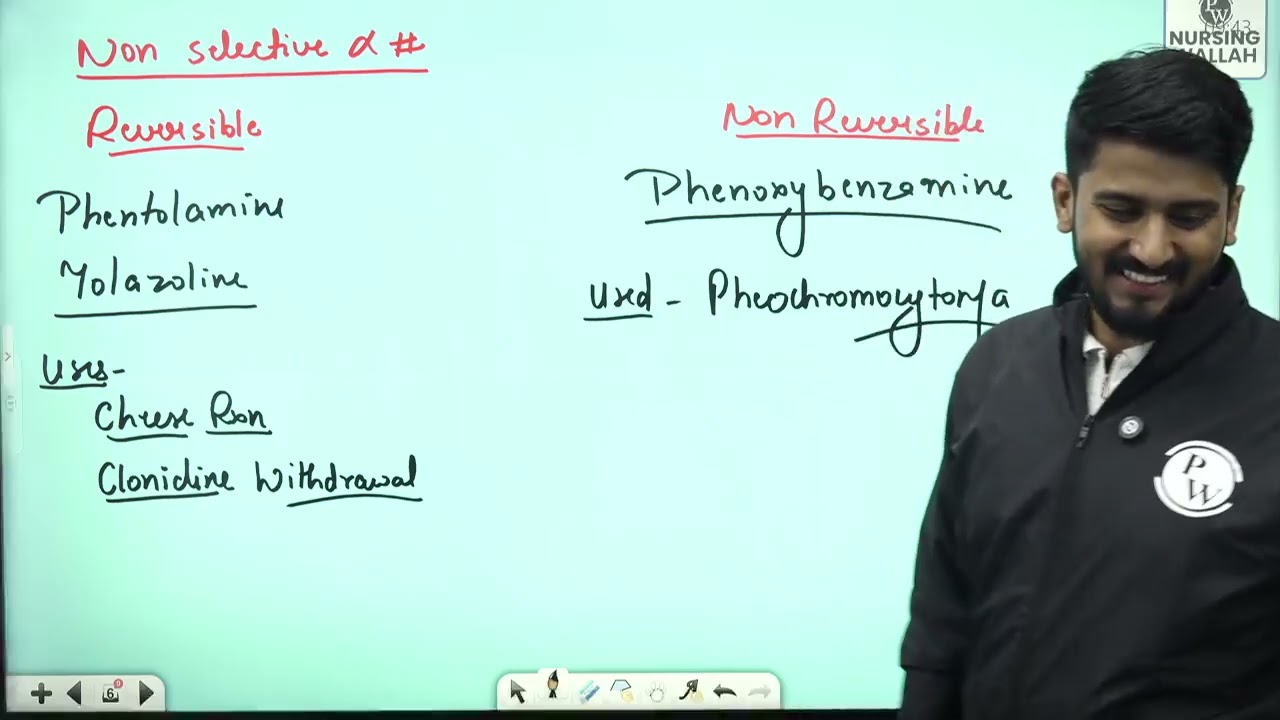 Non selective α #
Reversible
Phentolamine
Tolazoline
Uses-
Cheese Rxn
Clonidine Withdrawal
Non Reversible
Phenoxybenzamine
Used - Pheochromocytoma
PW
NURSING
WALLAH
09:43
6
9
P
W